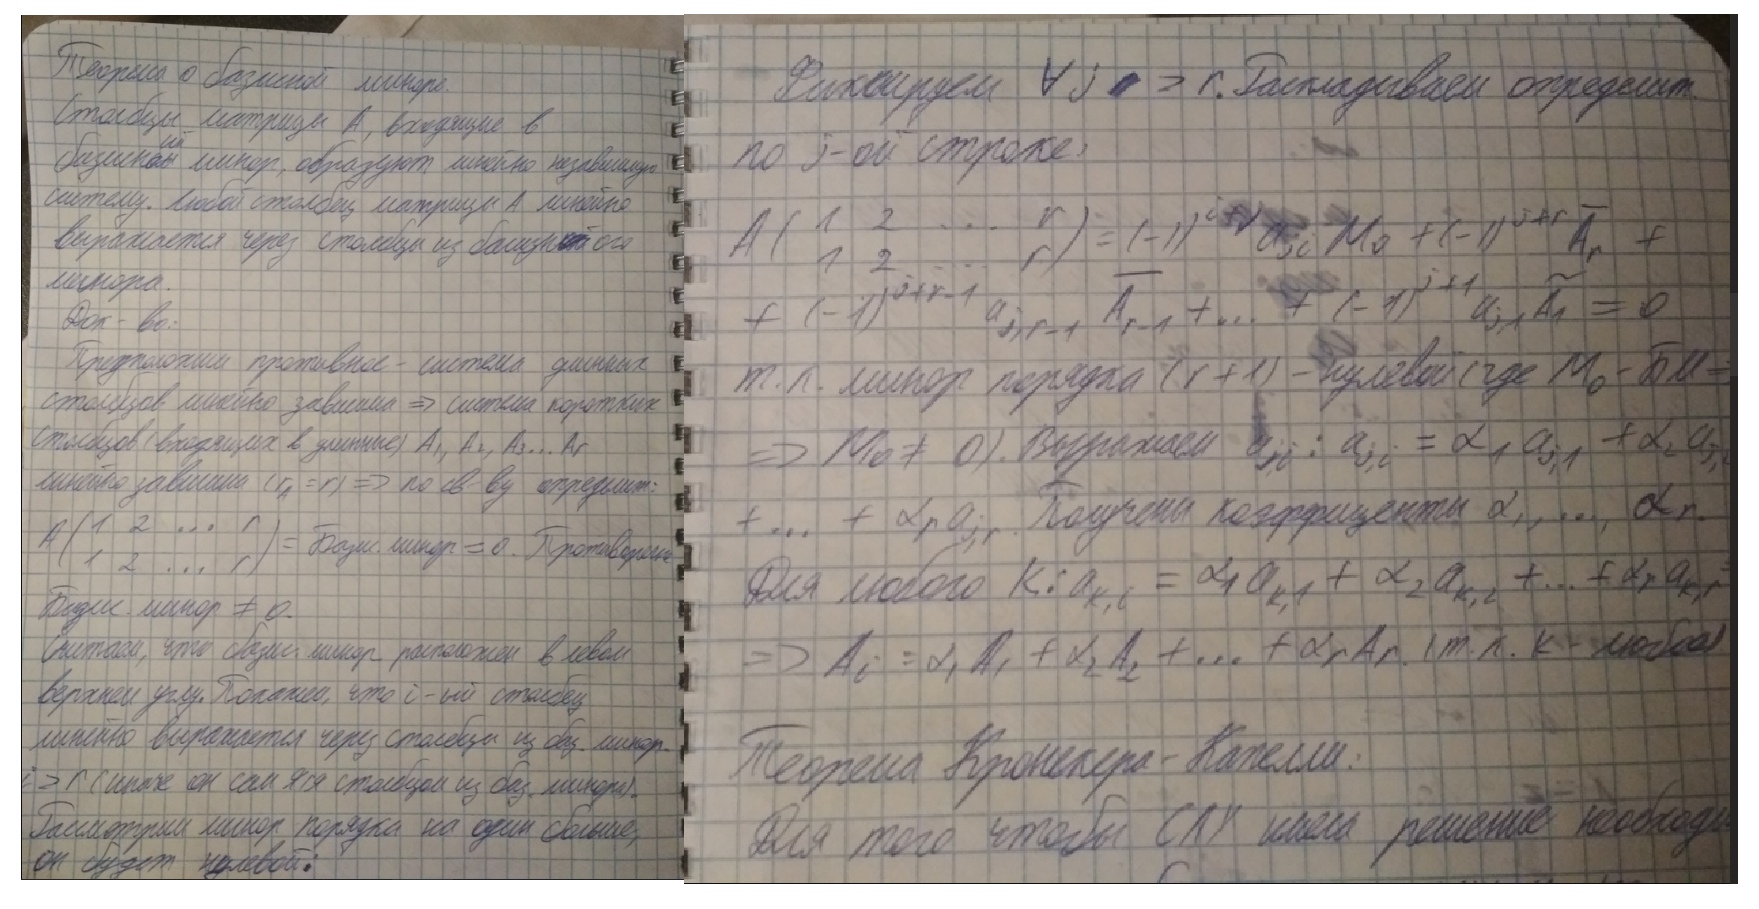 Теорема о базисной миноре.
Столбцы матрицы A, входящие в
базисный минор, образуют линейно независимую
систему. Любой столбец матрицы A линейно
выражается через столбцы из базисного
минора.
Док-во:
Предположим противное - система длинных
столбцов линейно зависима => система коротких
столбцов (входящих в длинные) A₁, A₂, A₃... Aᵣ
линейно зависима (r_A = r) => по св-ву определит:
A(1 2 ... r
1 2 ... r) = Базис. минор = 0. Противоречие
Базис. минор ≠ 0.
Считаем, что базис. минор расположен в левом
верхнем углу. Покажем, что i-ый столбец
линейно выражается через столбцы из баз. минор.
i > r (иначе он сам яв-ся столбцом из баз. минора).
Рассмотрим минор порядка на один больше,
он будет нулевой:
Фиксируем ∀ j > r. Раскладываем определит.
по j-ой строке:
A(1 2 ... r
1 2 ... r) = (-1)^{i+j} a_{ji} M₀ + (-1)^{j+r} A̅ᵣ +
+ (-1)^{j+r-1} a_{j,r-1} A̅_{r-1} + ... + (-1)^{j+1} a_{j,1} Ã₁ = 0
т.к. минор порядка (r+1) - нулевой (где M₀ - БМ =
=> M₀ ≠ 0). Выражаем a_{ji}: a_{j,i} = α₁ a_{j,1} + α₂ a_{j,2}
+ ... + αᵣ a_{j,r}. Получены коэффициенты α₁, ..., αᵣ.
Для любого K: a_{k,i} = α₁ a_{k,1} + α₂ a_{k,2} + ... + αᵣ a_{k,r} =
=> Aᵢ = α₁A₁ + α₂A₂ + ... + αᵣAᵣ. (т.к. k - любое)
Теорема Кронекера-Капелли:
Для того чтобы СЛУ имела решение необходи